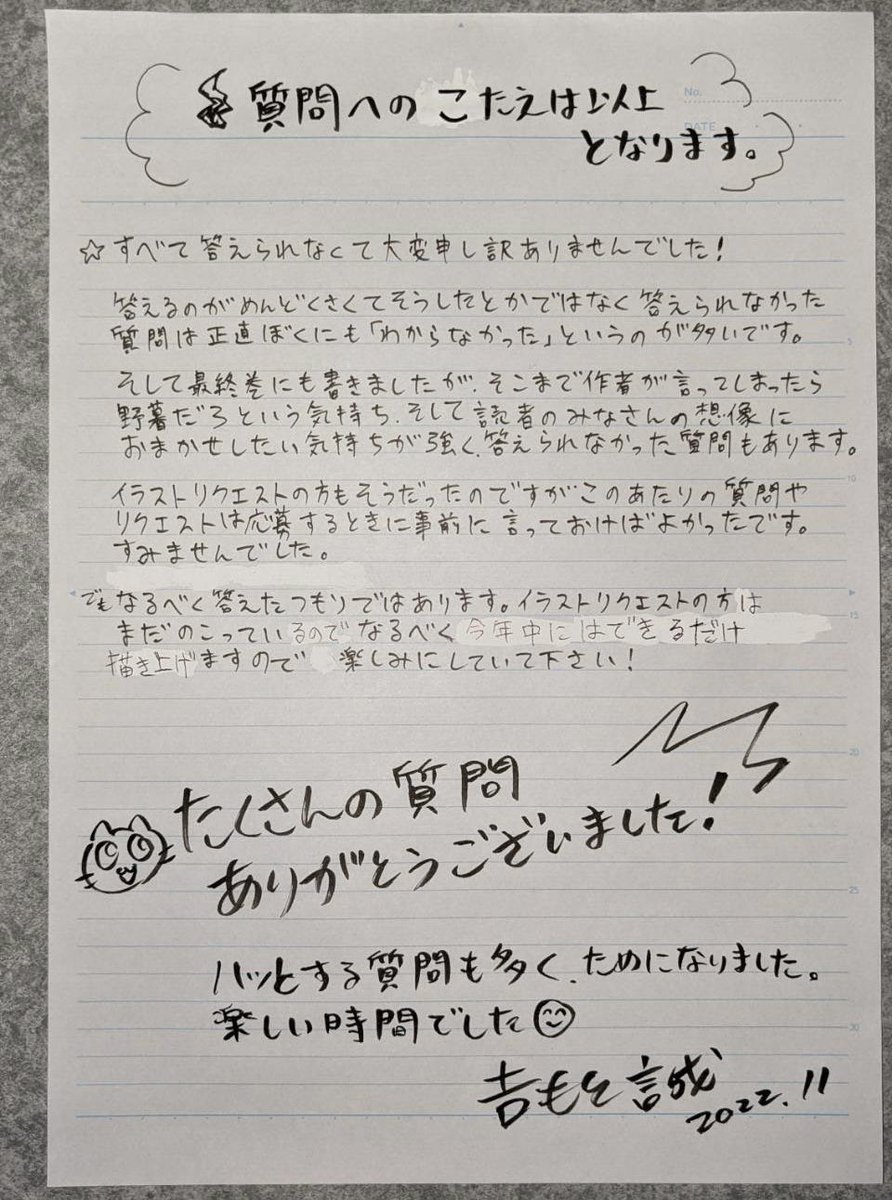 質問へのこたえは以上
となります。
No.
DATE
☆すべて答えられなくて大変申し訳ありませんでした!
答えるのがめんどくさくてそうしたとかではなく答えられなかった
質問は正直ぼくにも「わからなかった」というのが多いです。
そして最終巻にも書きましたが、そこまで作者が言ってしまったら
野暮だろという気持ち、そして読者のみなさんの想像に
おまかせしたい気持ちが強く、答えられなかった質問もあります。
イラストリクエストの方もそうだったのですがこのあたりの質問や
リクエストは応募するときに事前に言っておけばよかったです。
すみませんでした。
でもなるべく答えたつもりではあります。イラストリクエストの方は
まだのこっているのでなるべく今年中にはできるだけ
描き上げますので楽しみにしていて下さい!
たくさんの質問
ありがとうございました!
ハッとする質問も多く、ためになりました。
楽しい時間でした
吉もと誠
2022.11
5
10
15
20
25
30